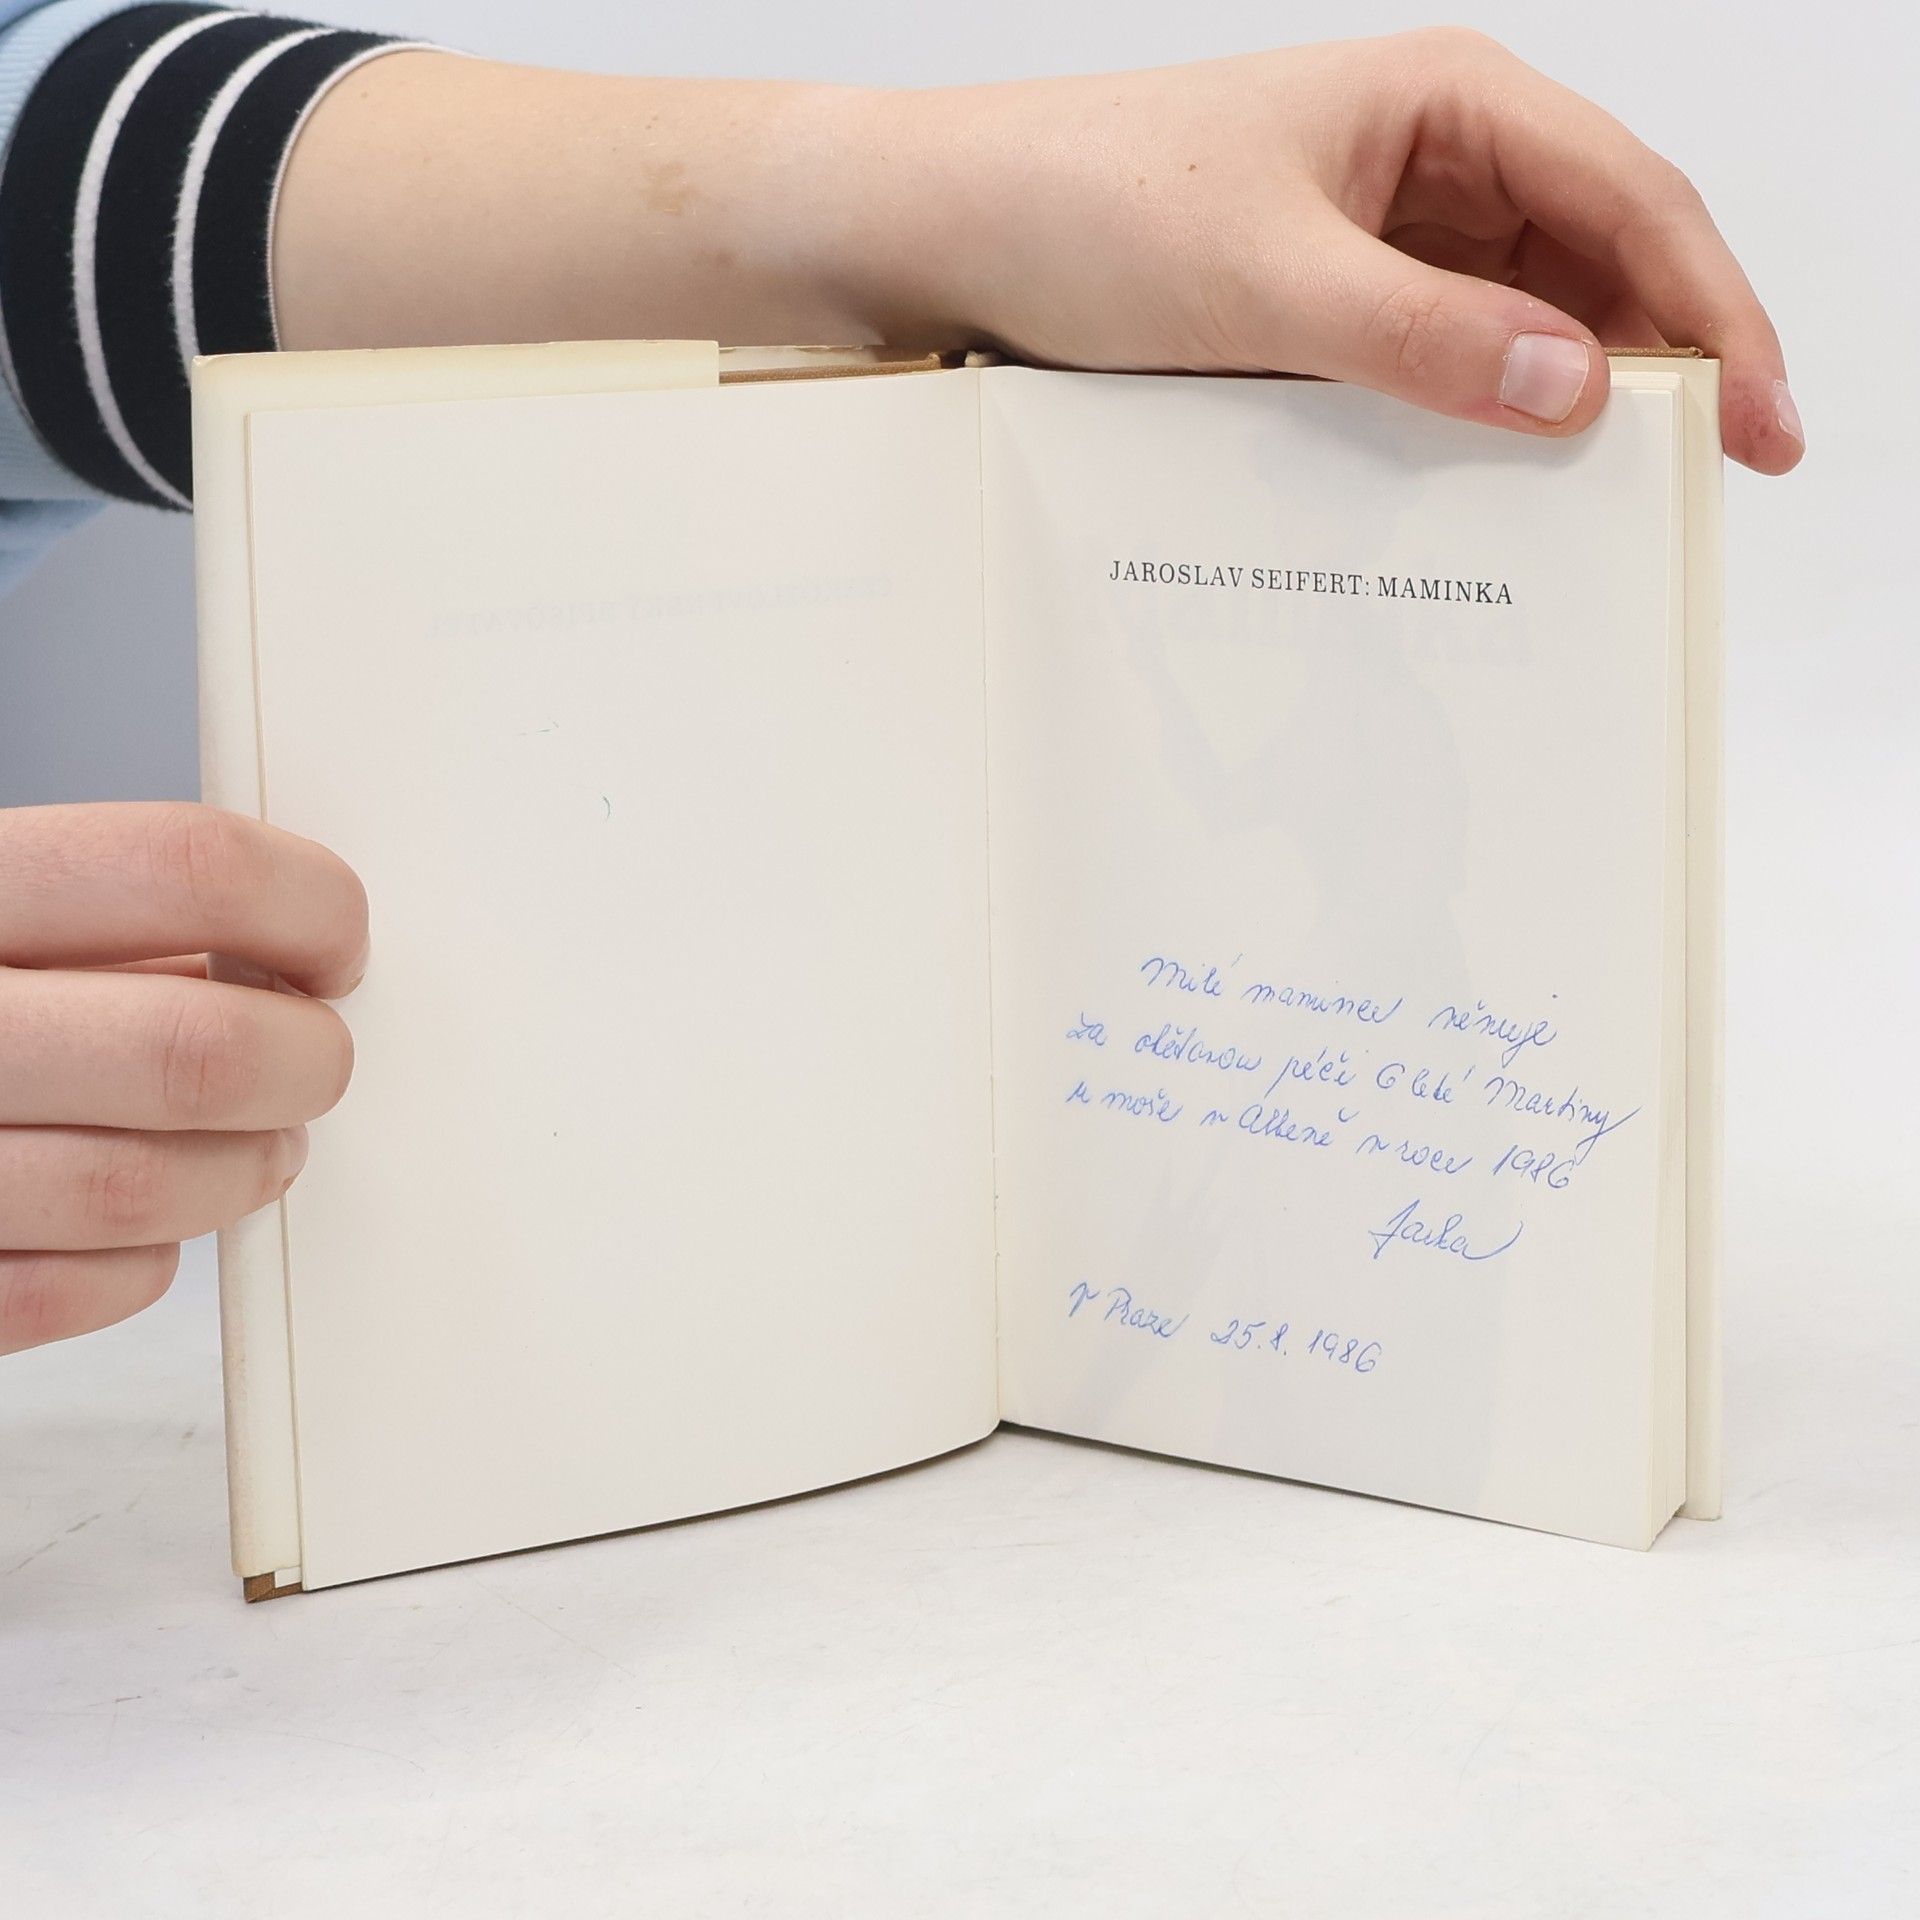 JAROSLAV SEIFERT: MAMINKA
Milé mamince věnuje
za obětavou péči 6 leté Martiny
u moře v Albeně v roce 1986
Jarka
V Praze 25.8.1986